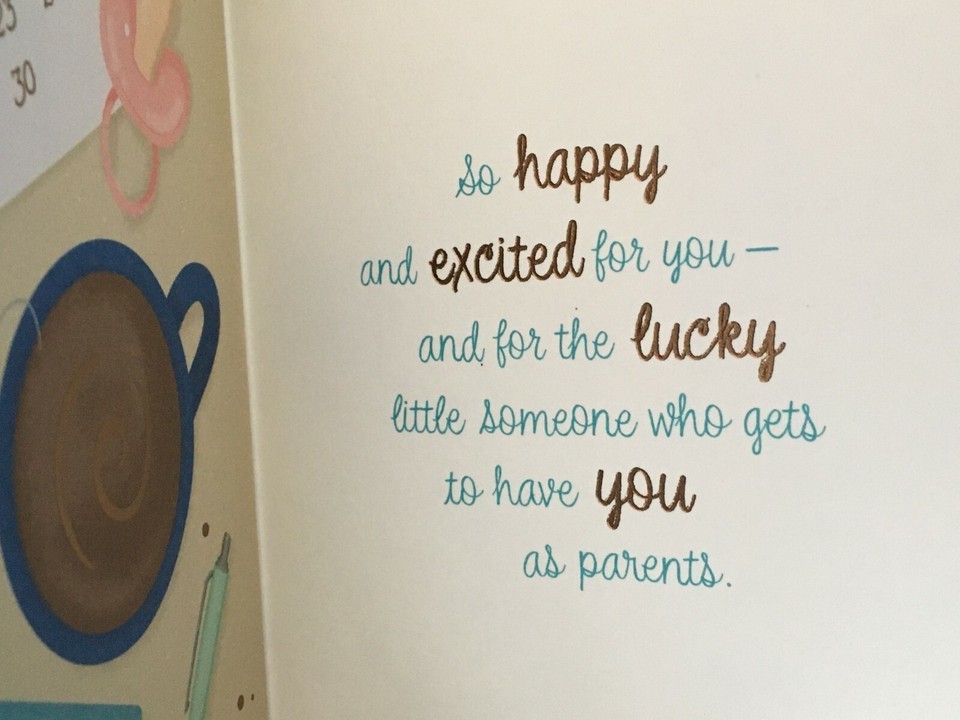 30
so happy
and excited for you —
and for the lucky
little someone who gets
to have you
as parents.